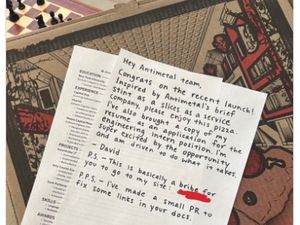 Hey Antimetal team,
Congrats on the recent launch!
Inspired by Antimetal's brief
stint as a slices as a service
company, please enjoy this pizza.
I've also brought a copy of my
resume as an application for the
engineering open position. I'm
super excited by the opportunity
and am driven to do what it takes.
- David
P.S. - This is basically a bribe for
you to go to my site:
P.P.S. - I've made a small PR to
fix some links in your docs.
EDUCATION
EXPERIENCE
PROJECTS
SKILLS
AWARDS